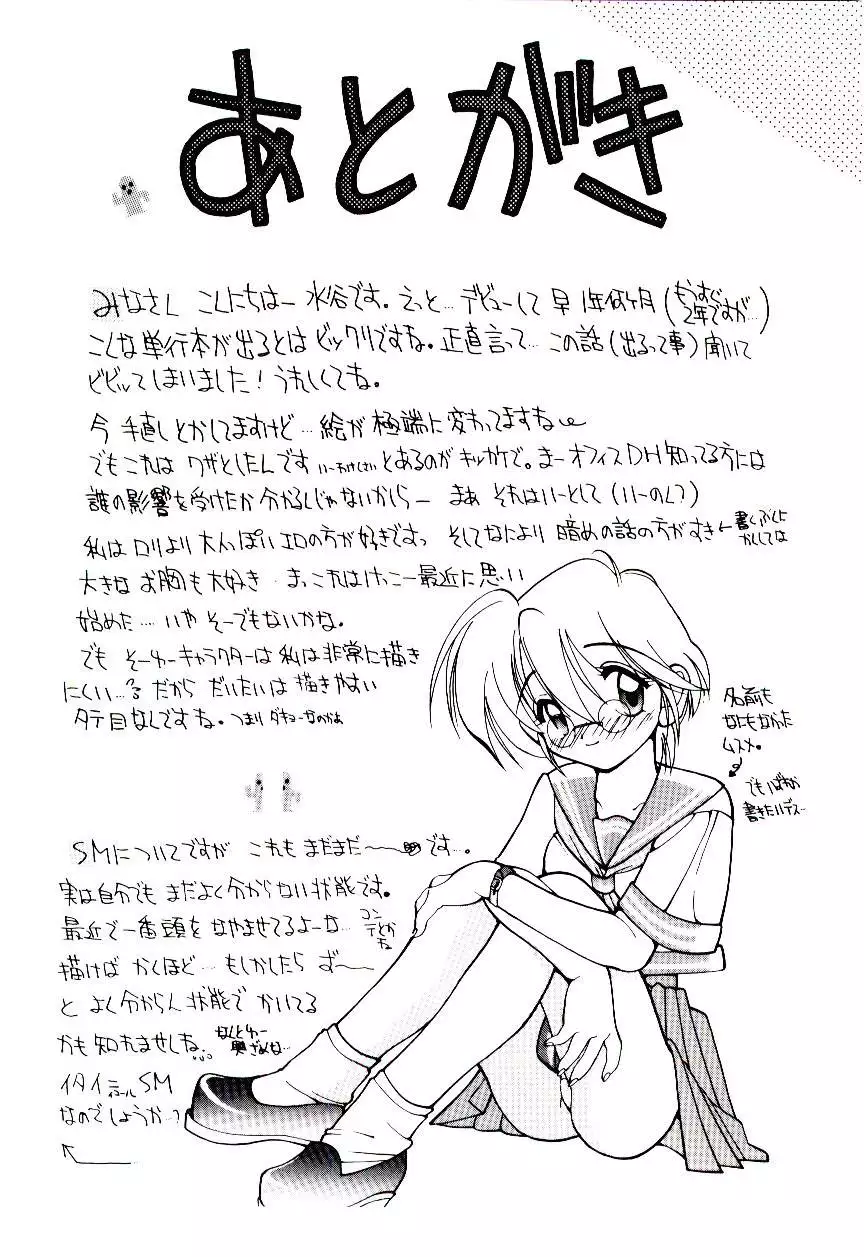 あとがき
みなさん こんにちはー 水谷です。えっと…デビューして 早1年何ヶ月(もうすぐ2年ですが…)
こんな単行本が出るとは ビックリですね。正直言って… この話(出るって事)聞いて
ビビッてしまいました！うれしくてね。
今 手直しとかしてますけど…絵が極端に変わってますね
でもこれは ワザとしたんです とあるのが キッカケで。まーオフィスDH知ってる方には
誰の影響を受けたか分かるんじゃないかしらー まぁ それはいーとして(いーのん？)
私はロリより大人っぽいエロの方が好きですっ そしてなにより 暗めの話の方がすき←書くぶんに
かんしては
大きな お胸も大好き まっこれはけっこー最近に思い
始めた…いや そーでもないかな。
でも そーゆーキャラクターは 私は非常に描き
にくい…。だから だいたいは 描きやすい
タテ目なんですね。つまり
名前も
なにもなかった
ムスメ。
でも
書きたいデス…
SMについてですが これも まだまだ〜です…。
実は自分でも まだよく分からない状態です。
最近で一番頭を なやませてるよーな…コンテとかね
描けば かくほど… もしかしたら ず〜
と よく分からん状態で かいてる
かも知れませんね。なんとゆー
イタイ SM
なのでしょうか…？